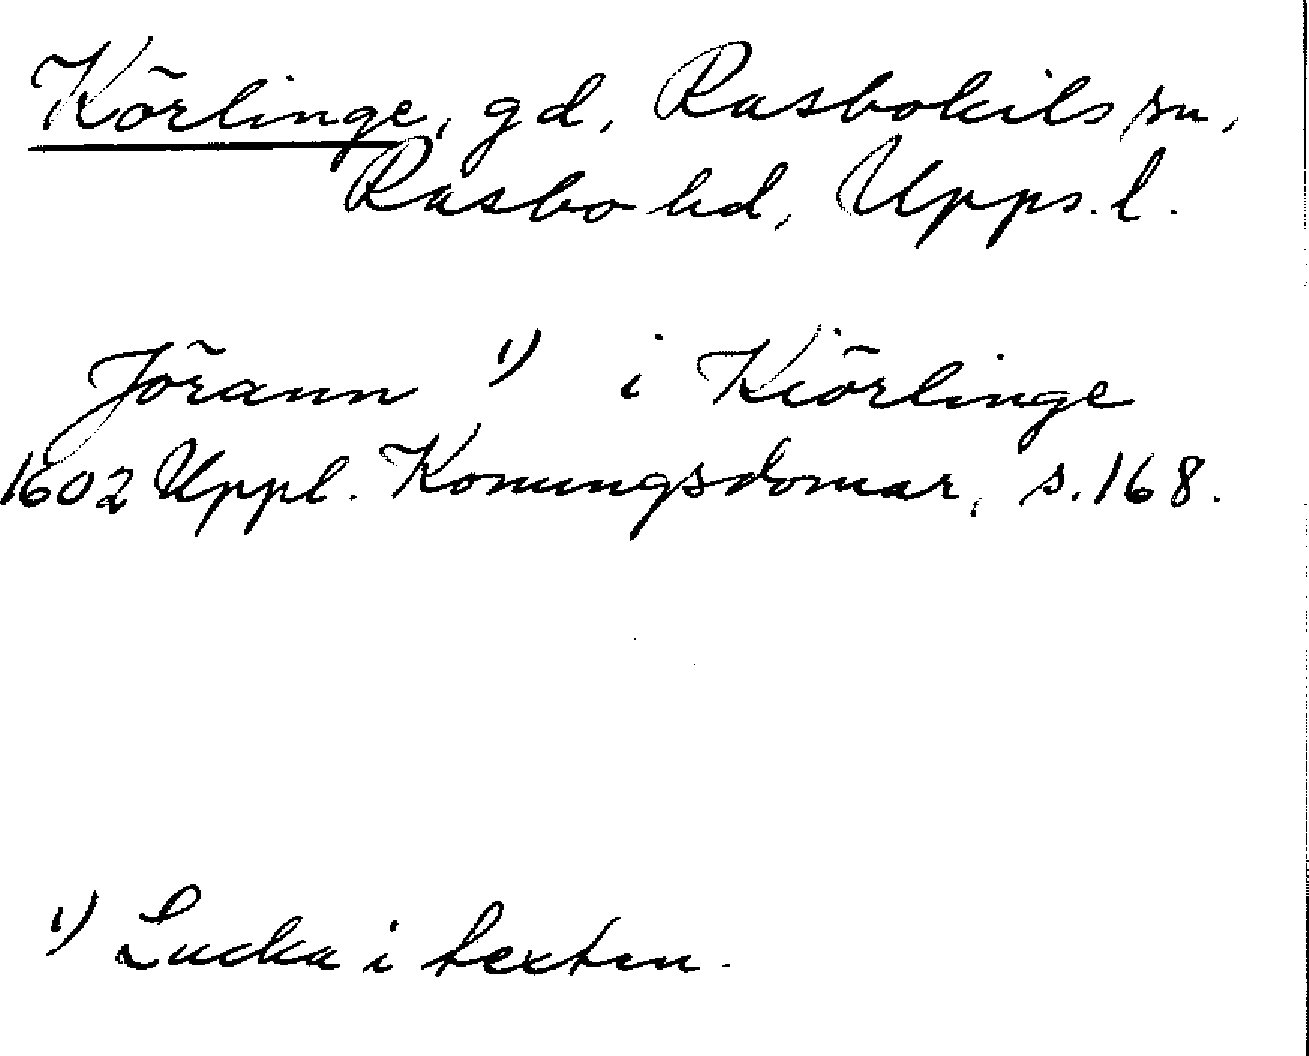 Körlinge, gd, Rasbokils sn,
Rasbo hd, Upps. l.
Jörann ¹) i Kiörlinge
1602 Uppl. Konungsdomar, s. 168.
¹) Lucka i texten.